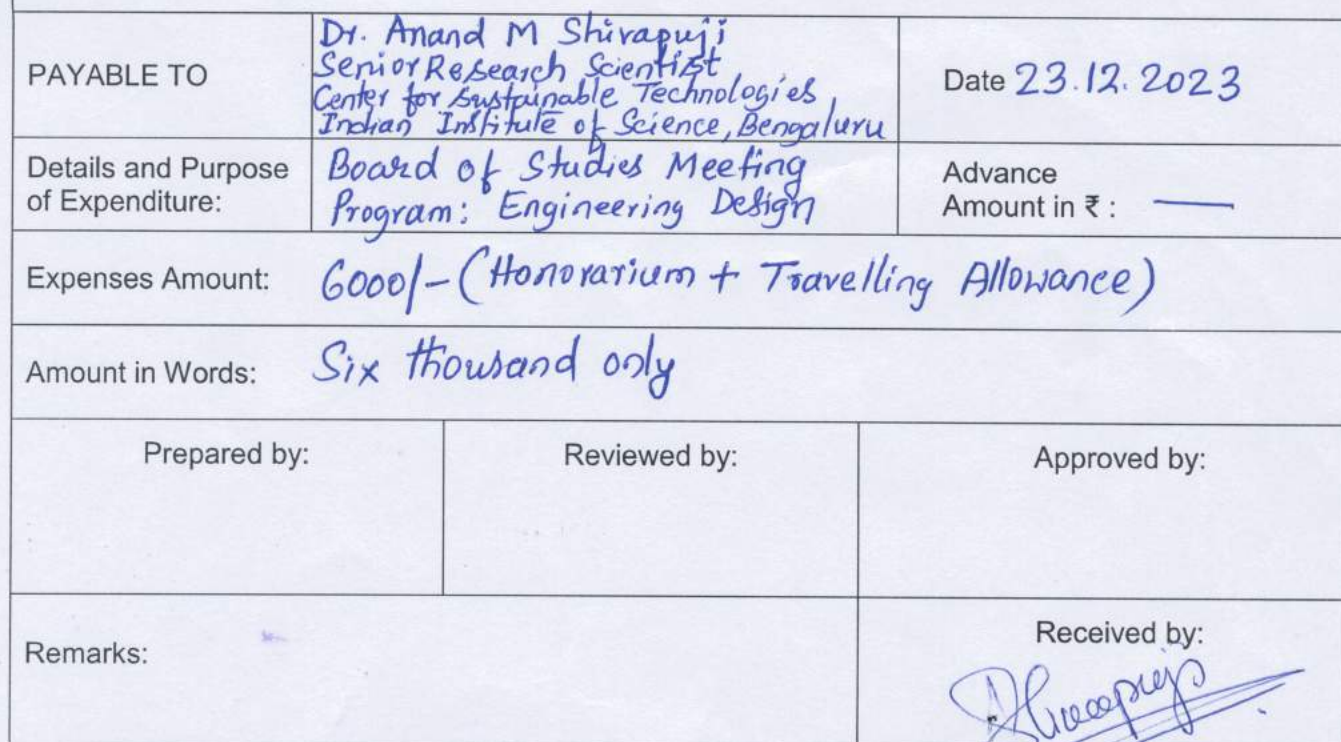 PAYABLE TO
Dr. Anand M Shivapuji
Senior Research Scientist
Center for Sustainable Technologies,
Indian Institute of Science, Bengaluru
Date 23.12.2023
Details and Purpose
of Expenditure:
Board of Studies Meeting
Program: Engineering Design
Advance
Amount in ₹ : —
Expenses Amount: 6000/- (Honorarium + Travelling Allowance)
Amount in Words: Six thousand only
Prepared by:
Reviewed by:
Approved by:
Remarks:
Received by: